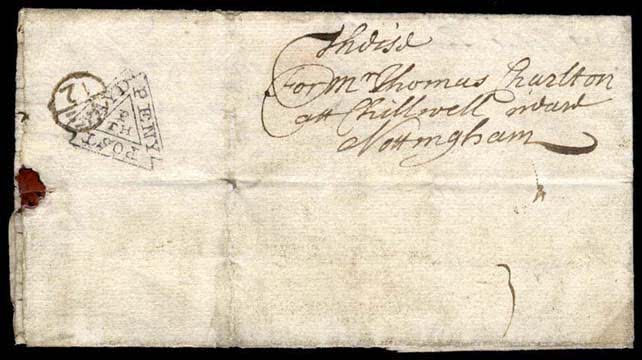 Theise
For Mr Thomas Charlton
att Chillwell neare
Nottingham
PENY
POST
PAYD